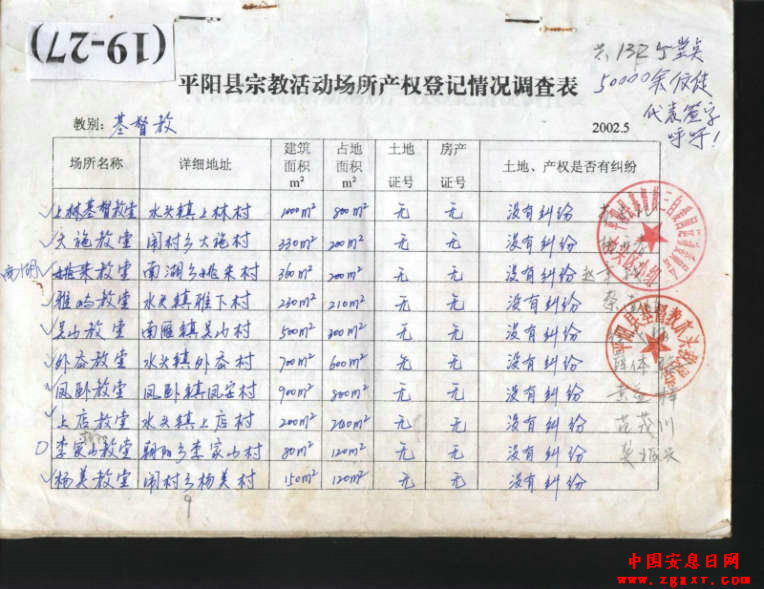 (19-27)
共132个堂点
50000余位信徒
代表签字
呼吁!
平阳县宗教活动场所产权登记情况调查表
教别: 基督教 2002.5
场所名称 详细地址 建筑面积 m² 占地面积 m² 土地证号 房产证号 土地、产权是否有纠纷
上林基督教堂 水头镇上林村 1000m² 800m² 无 无 没有纠纷
大施教堂 闹村乡大施村 330m² 200m² 无 无 没有纠纷
南湖 教堂 南湖乡 村 360m² 200m² 无 无 没有纠纷
教堂 水头镇 村 230m² 210m² 无 无 没有纠纷
吴山教堂 南雁镇吴山村 500m² 300m² 无 无 没有纠纷
外岙教堂 水头镇外岙村 700m² 600m² 无 无 没有纠纷
凤卧教堂 凤卧镇凤安村 900m² 800m² 无 无 没有纠纷
上店教堂 水头镇上店村 200m² 240m² 无 无 没有纠纷 范茂川
李家山教堂 朝阳乡李家山村 80m² 120m² 无 无 没有纠纷
杨美教堂 闹村乡杨美村 150m² 120m² 无 无 没有纠纷
9
平阳县基督教水头教
中国安息日网
www.zgaxr.com